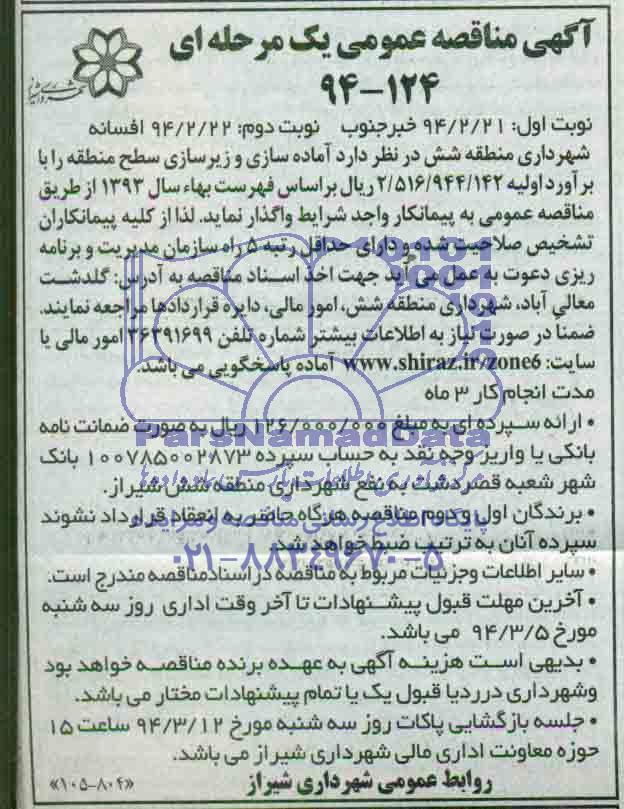 آگهی مناقصه عمومی یک مرحله ای
۹۴-۱۲۴
نوبت اول: ۹۴/۲/۲۱ خبرجنوب نوبت دوم: ۹۴/۲/۲۲ افسانه
شهرداری منطقه شش در نظر دارد آماده سازی و زیرسازی سطح منطقه را با
برآورد اولیه ۲/۵۱۶/۹۴۴/۱۴۲ ریال براساس فهرست بهاء سال ۱۳۹۳ از طریق
مناقصه عمومی به پیمانکار واجد شرایط واگذار نماید. لذا از کلیه پیمانکاران
تشخیص صلاحیت شده و دارای حداقل رتبه ۵ راه سازمان مدیریت و برنامه
ریزی دعوت به عمل می آید جهت اخذ اسناد مناقصه به آدرس: گلدشت
معالی آباد، شهرداری منطقه شش، امور مالی، دایره قراردادها مراجعه نمایند.
ضمنا در صورت نیاز به اطلاعات بیشتر شماره تلفن ۳۶۳۹۱۶۹۹ امور مالی یا
سایت: www.shiraz.ir/zone6 آماده پاسخگویی می باشد.
مدت انجام کار ۳ ماه
• ارائه سپرده ای به مبلغ ۱۲۶/۰۰۰/۰۰۰ ریال به صورت ضمانت نامه
بانکی یا واریز وجه نقد به حساب سپرده ۱۰۰۷۸۵۰۰۲۸۷۳ بانک
شهر شعبه قصردشت به نفع شهرداری منطقه شش شیراز.
• برندگان اول و دوم مناقصه هرگاه حاضر به انعقاد قرارداد نشوند
سپرده آنان به ترتیب ضبط خواهد شد.
• سایر اطلاعات وجزئیات مربوط به مناقصه دراسنادمناقصه مندرج است.
• آخرین مهلت قبول پیشنهادات تا آخر وقت اداری روز سه شنبه
مورخ ۹۴/۳/۵ می باشد.
• بدیهی است هزینه آگهی به عهده برنده مناقصه خواهد بود
وشهرداری درردیا قبول یک یا تمام پیشنهادات مختار می باشد.
• جلسه بازگشایی پاکات روز سه شنبه مورخ ۹۴/۳/۱۲ ساعت ۱۵
حوزه معاونت اداری مالی شهرداری شیراز می باشد.
روابط عمومی شهرداری شیراز
«۱۰۵-۸۰۴»
ParsNamadData
۰۲۱-۸۸۳۴۹۶۷۰-۵